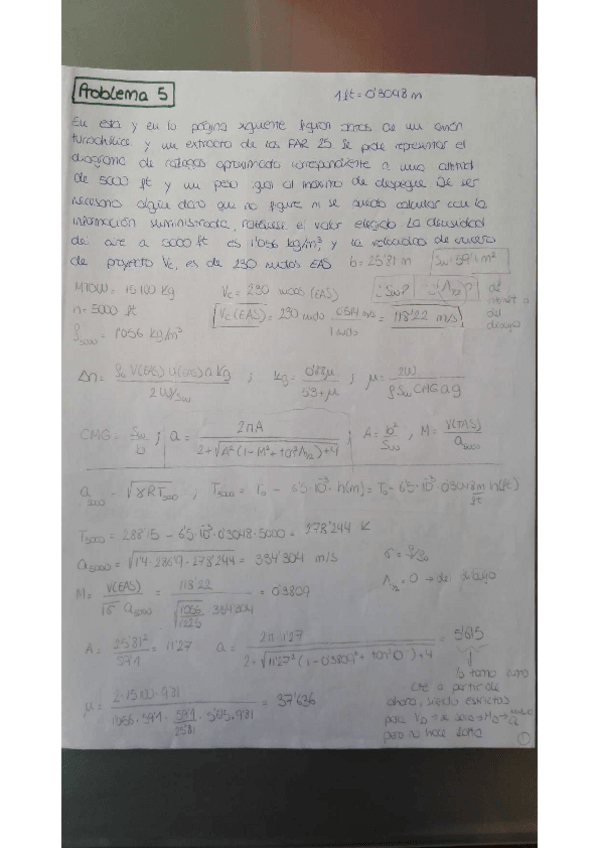 Problema 5
1 ft = 0'3048 m
En esta y en la página siguiente figuran datos de un avión
turbohélice y un extracto de las FAR 25. Se pide representar el
diagrama de ráfagas aproximado correspondiente a una altitud
de 5000 ft y un peso igual al máximo de despegue. De ser
necesario algún dato que no figure ni se pueda calcular con la
información suministrada, el valor elegido. La densidad
del aire a 5000 ft es 1'056 kg/m³, y la velocidad de crucero
de proyecto Vc, es de 230 nudos EAS. b = 25'81 m Sw = 59'1 m²
MTOW = 15100 kg Vc = 230 nudos (EAS) ¿Sw? ¿(Λ1/2)?
h = 5000 ft Vc(EAS) = 230 nudo · 0'514 m/s / 1 nudo = 118'22 m/s
ρ5000 = 1'056 kg/m³
Δn = ρ0 V(EAS) U(EAS) a Kg / 2W/Sw ; Kg = 0'88μ / 5'3+μ ; μ = 2W / ρ Sw CMG a g
CMG = Sw / b ; a = 2πA / 2+√A²(1-M²+tan²Λ1/2)+4 ; A = b² / Sw , M = V(TAS) / a5000
a5000 = √γRT5000 , T5000 = T0 - 6'5·10⁻³·h(m) = T0 - 6'5·10⁻³·0'3048 m/ft h(ft)
T5000 = 288'15 - 6'5·10⁻³·0'3048·5000 = 278'244 K
a5000 = √1'4·286'9·278'244 = 334'304 m/s σ = ρ/ρ0
M = V(EAS) / √σ a5000 = 118'22 / √1'056/1'225 · 334'304 = 0'3809 Λ1/2 = 0 → del dibujo
A = 25'81² / 59'1 = 11'27 a = 2π·11'27 / 2+√11'27²(1-0'3809²+tan²0)+4 = 5'615
μ = 2·15100·9'81 / 1'056·59'1·59'1/25'81·5'615·9'81 = 37'636
lo tomo como
cte a partir de
ahora, siendo estrictos
para
pero no hace falta
1